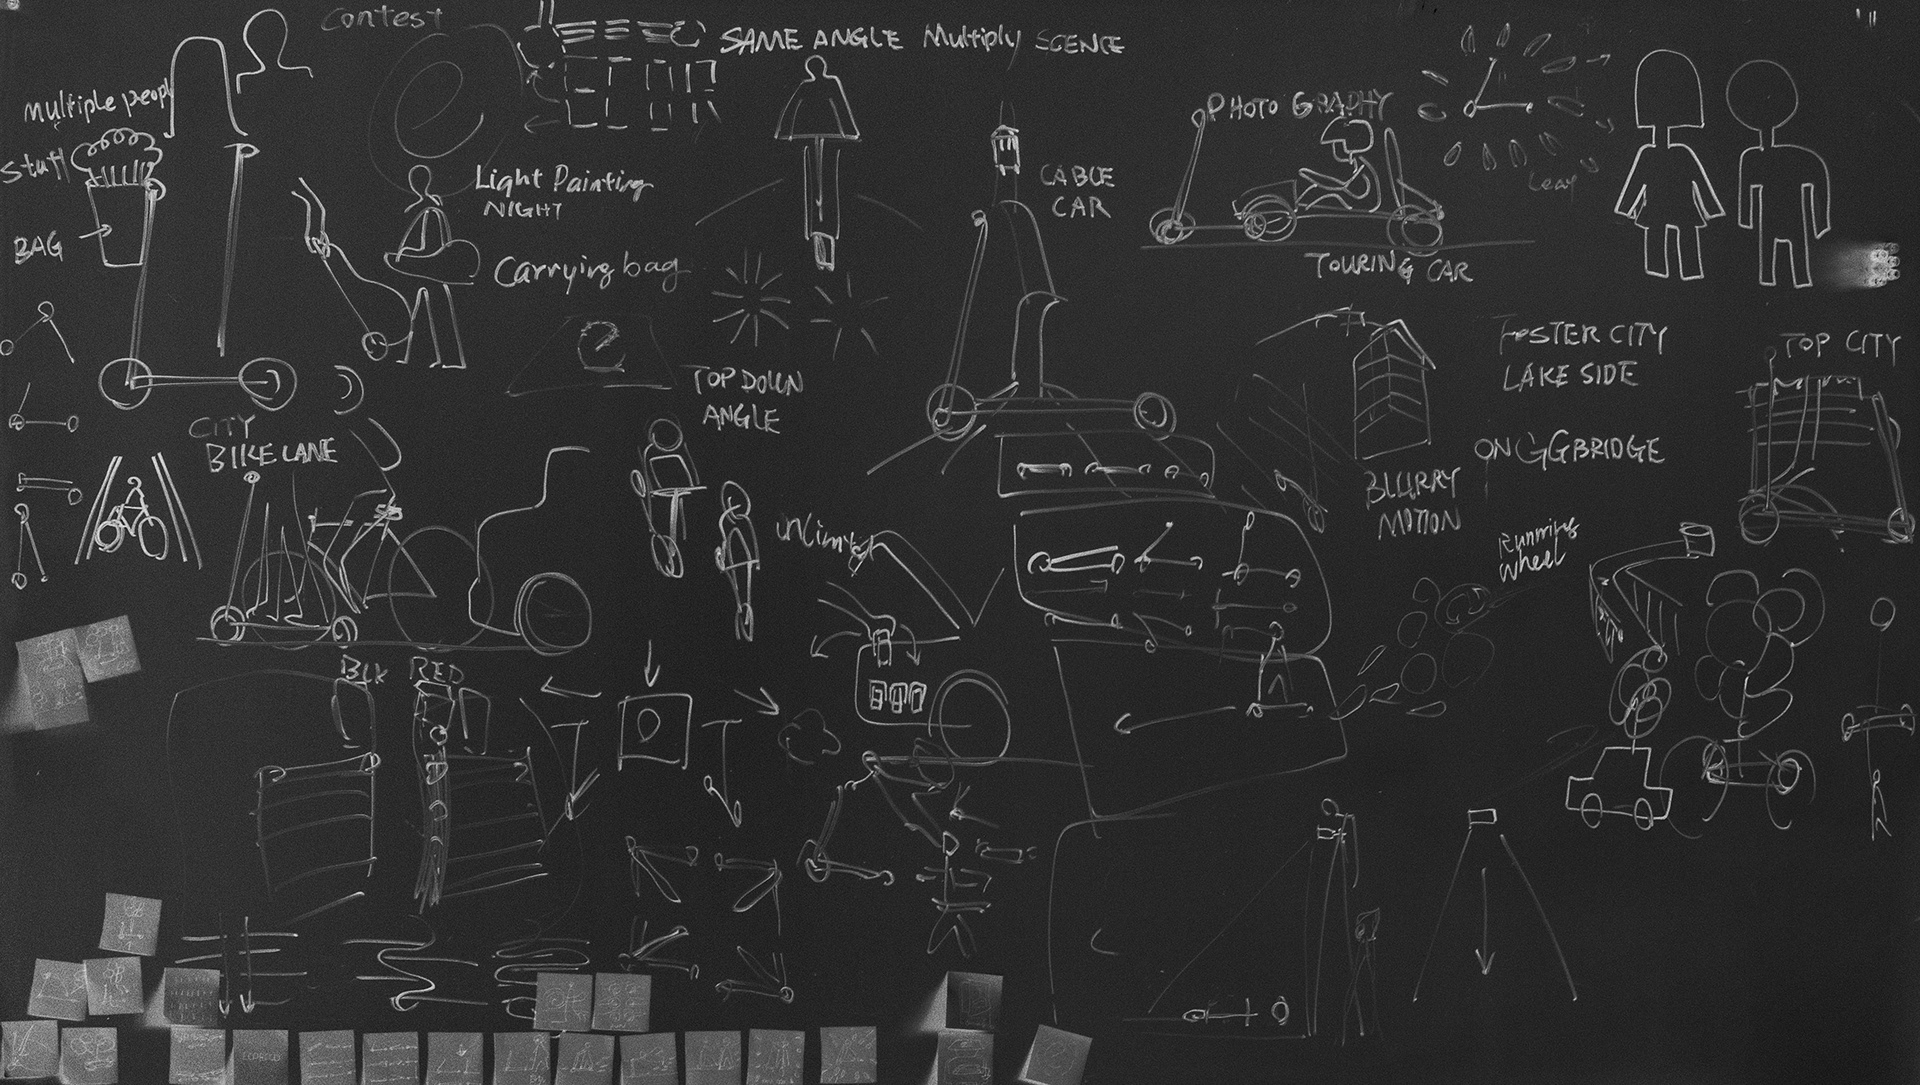 Contest
SAME ANGLE Multiply SCENCE
Multiple peopl
Stuff
BAG
Light Painting
NIGHT
Carrying bag
CABLE
CAR
PHOTOGRAPHY
TOURING CAR
Leaf
TOP DOWN
ANGLE
CITY
BIKE LANE
FOSTER CITY
LAKE SIDE
TOP CITY
ON GGBRIDGE
BLURRY
MOTION
Running
Wheel
BLK RED